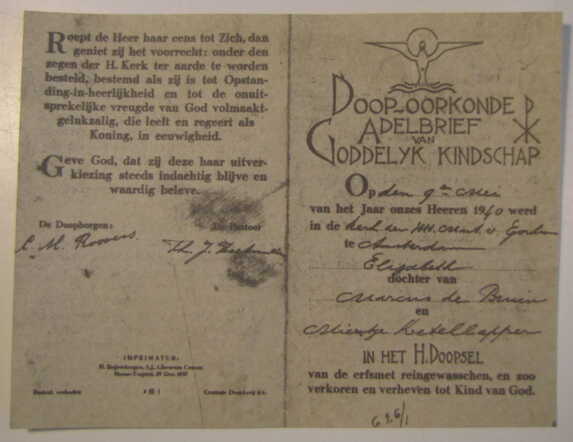 Roept de Heer haar eens tot Zich, dan
geniet zij het voorrecht: onder den
zegen der H. Kerk ter aarde te worden
besteld, bestemd als zij is tot Opstan-
ding-in-heerlijkheid en tot de onuit-
sprekelijke vreugde van God volmaakt-
gelukzalig, die leeft en regeert als
Koning, in eeuwigheid.
Geve God, dat zij deze haar uitver-
kiezing steeds indachtig blijve en
waardig beleve.
De Doopborgen:
De Pastoor
C. M. Roovers
Th. J.
IMPRIMATUR:
Nadruk verboden
DOOP-OORKONDE
ADELBRIEF
VAN
GODDELYK KINDSCHAP
Op den 9en Mei
van het Jaar onzes Heeren 1940 werd
in de Kerk der HH. Mart. v. Gorcum
te Amsterdam
Elizabeth
dochter van
Marcus de Bruin
en
Mientje Ketellapper
IN HET H. DOOPSEL
van de erfsmet reingewasschen, en zoo
verkoren en verheven tot Kind van God.